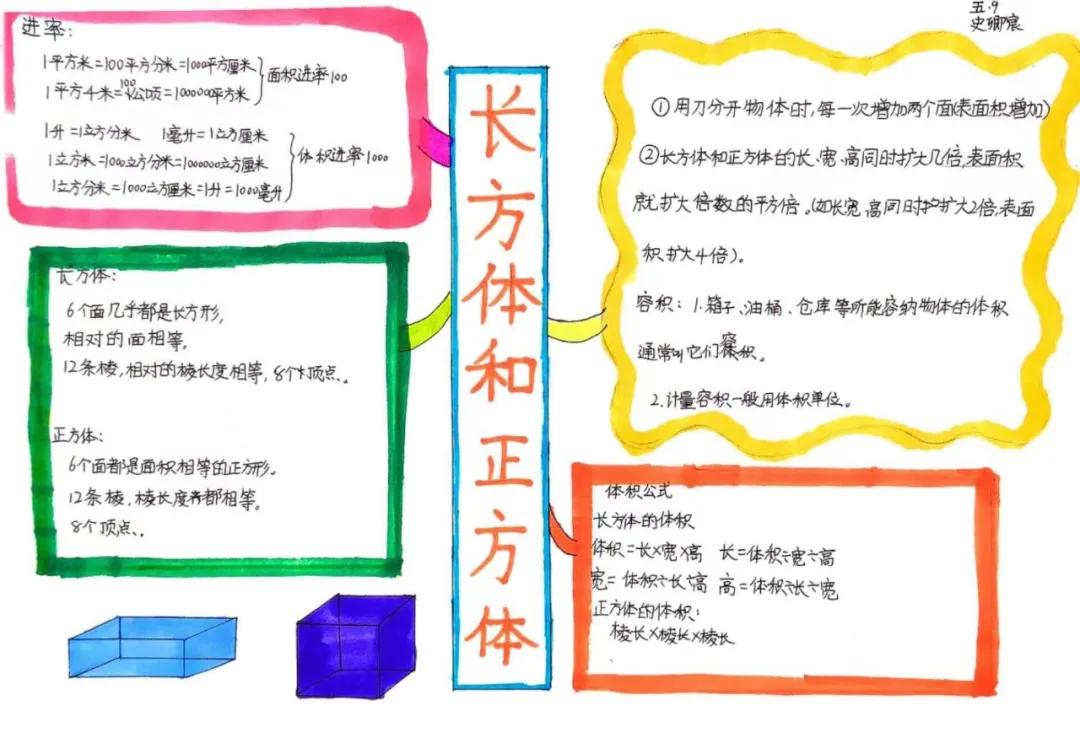 进率：
1平方米=100平方分米=1000平方厘米
1平方千米=100公顷=100000平方米
面积进率100
1升=1立方分米 1毫升=1立方厘米
1立方米=1000立方分米=1000000立方厘米
1立方分米=1000立方厘米=1升=1000毫升
体积进率1000
长方体：
6个面几乎都是长方形，
相对的面相等。
12条棱，相对的棱长度相等，8个顶点。
正方体：
6个面都是面积相等的正方形。
12条棱，棱长度都相等。
8个顶点。
长方体和正方体
五.9
史卿宸
①用刀分开物体时，每一次增加两个面(表面积增加)
②长方体和正方体的长、宽、高同时扩大几倍，表面积
就扩大倍数的平方倍。(如长宽、高同时扩大2倍，表面
积扩大4倍)。
容积：1.箱子、油桶、仓库等所能容纳物体的体积
通常叫它们容积。
2.计量容积一般用体积单位。
体积公式
长方体的体积
体积=长×宽×高 长=体积÷宽÷高
宽=体积÷长÷高 高=体积÷长÷宽
正方体的体积：
棱长×棱长×棱长